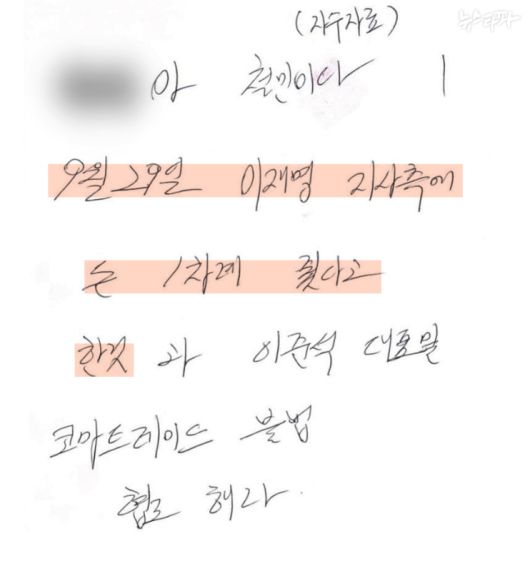 뉴스타파
(자수자료)
아 철민이다 1
9월 29일 이재명 지사측에
는 1차례 줬다고
한것 과 이준석 대표 일
코마트레이드 불법
협조 해라.